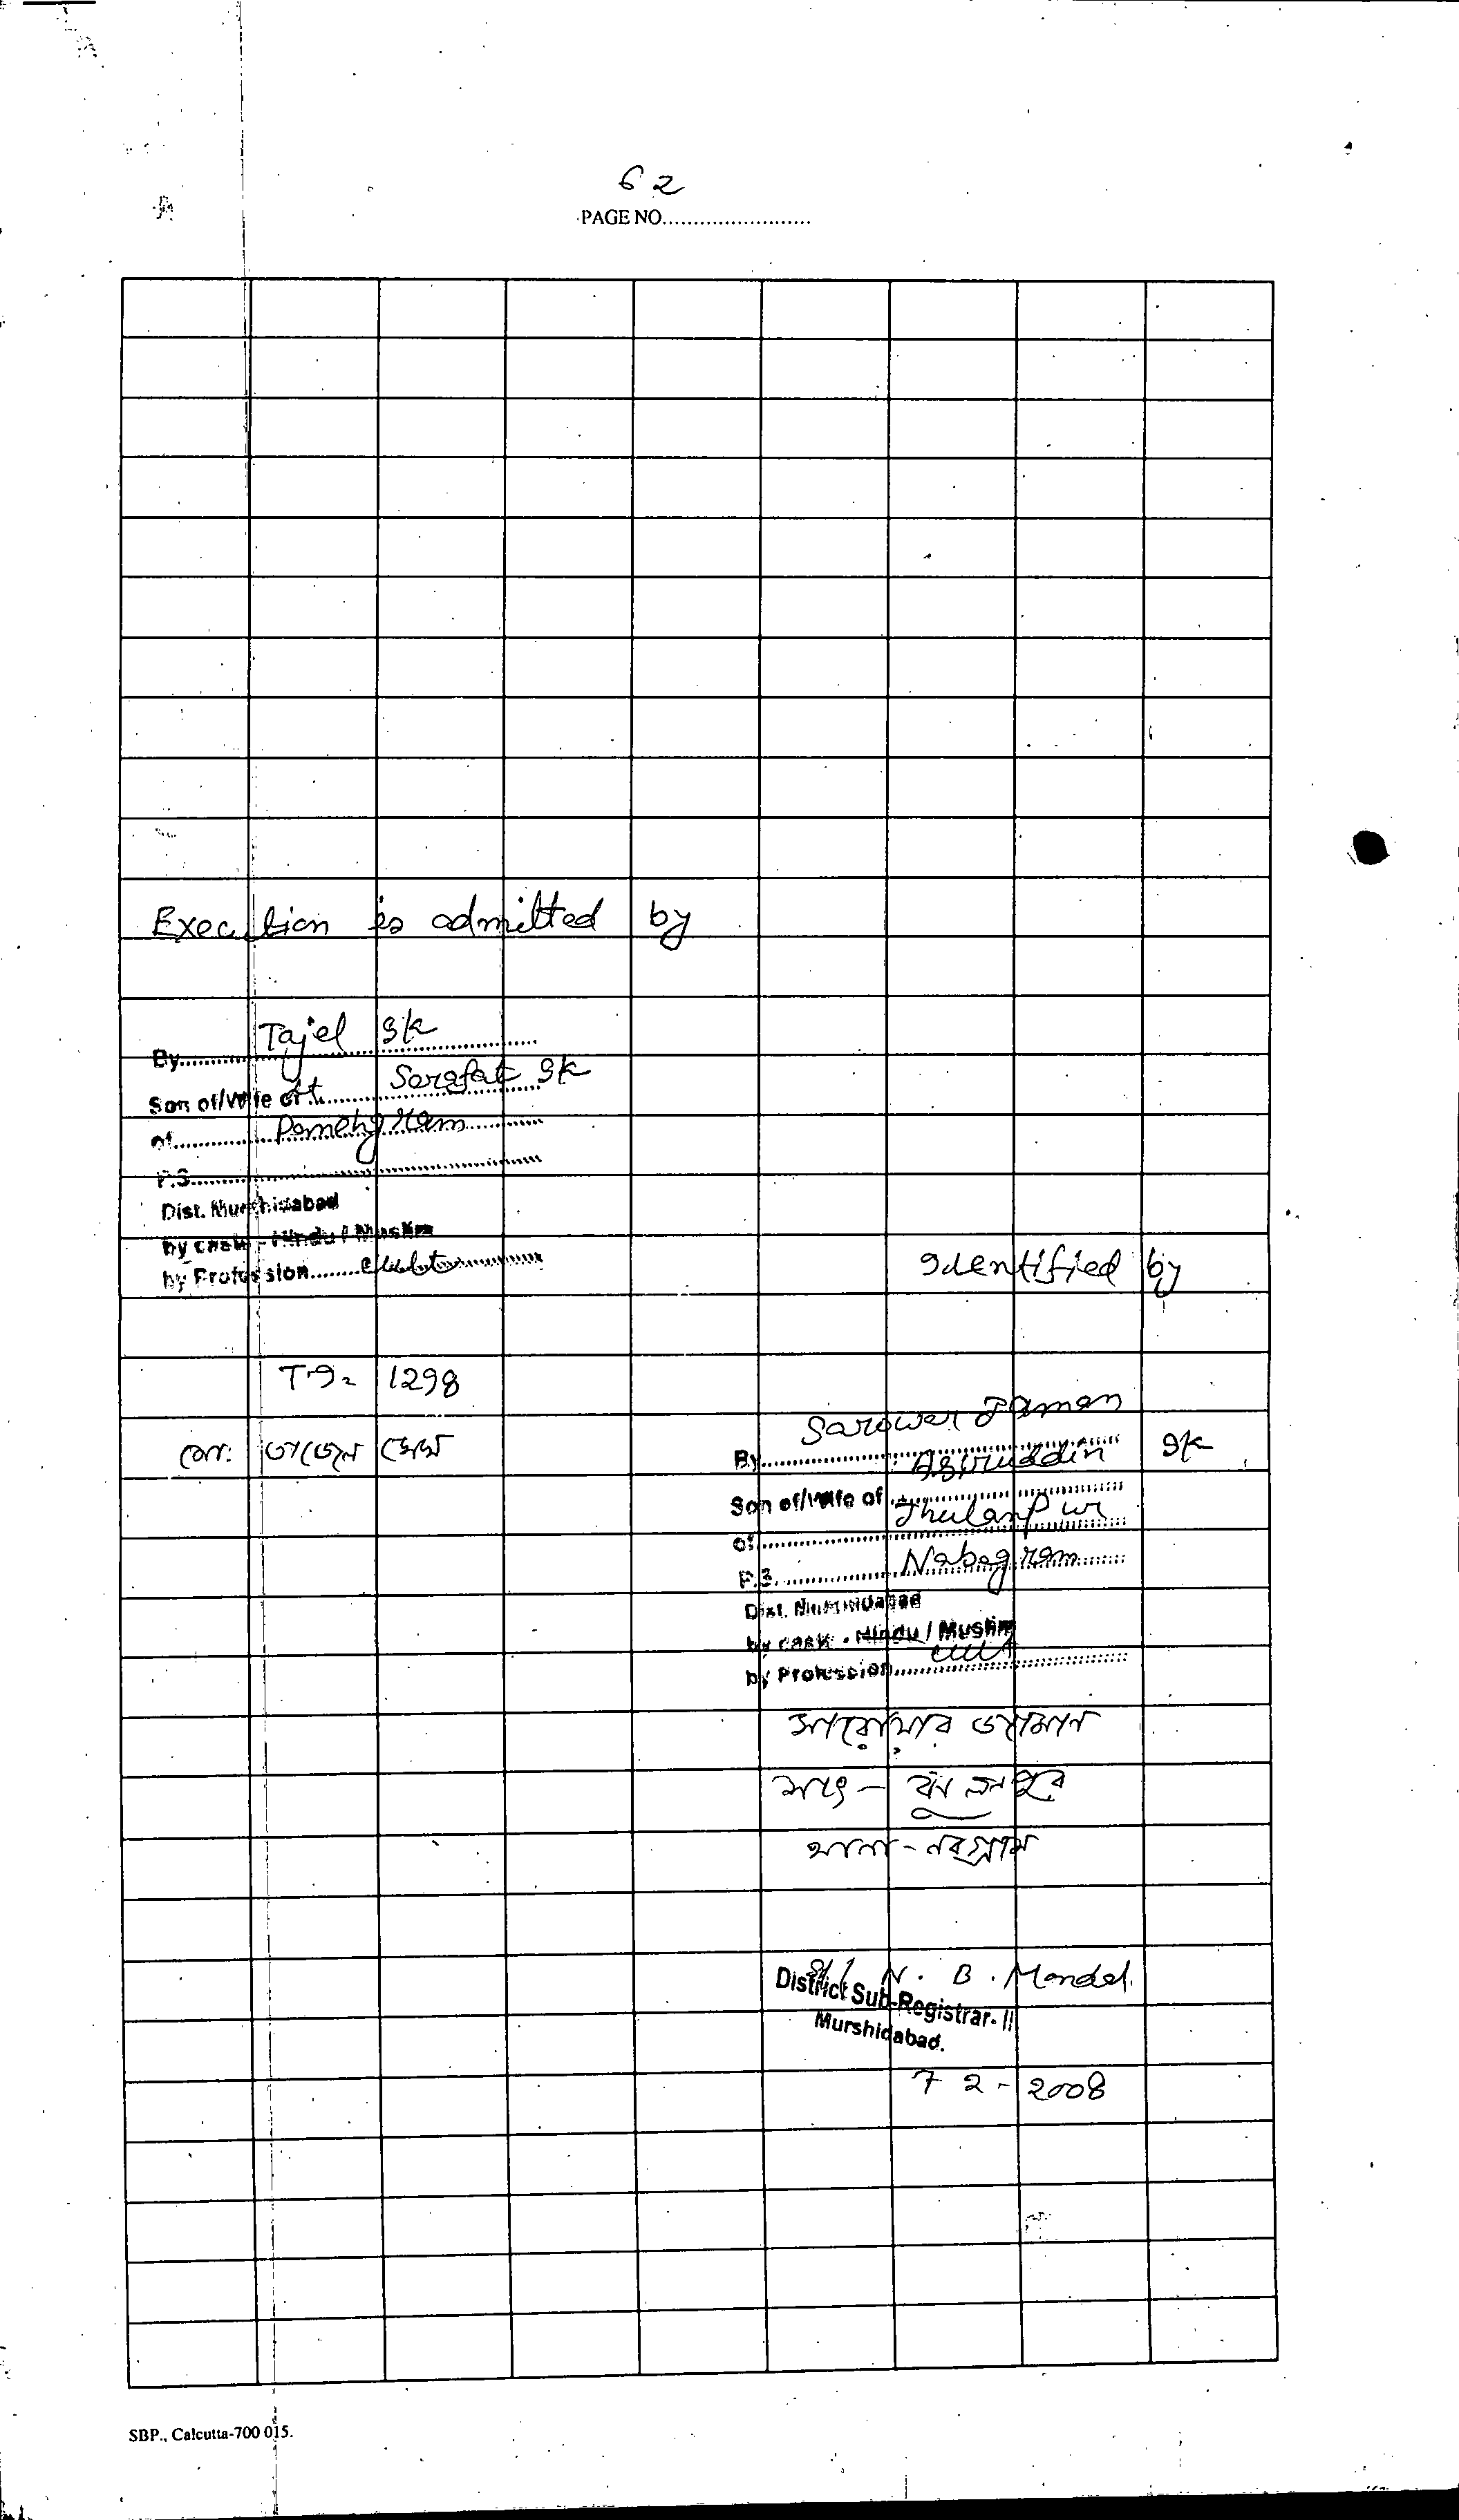 62
PAGE NO........................
Execution is admitted by
By Tajel Sk
Son of/Wife of Lt. Sarafat Sk
of
P.S.
Dist. Murshidabad
by caste - Hindu / Muslim
by Profession
Identified by
T.I. 1298
তাজেল সেখ
Sarowar Jaman
By Asiruddin Sk
Son of/Wife of
of Jhulanpur
P.S. Nabagram
Dist. Murshidabad
by caste - Hindu / Muslim
by Profession
সারোয়ার জামান
সাং - ঝুলনপুর
থানা - নবগ্রাম
Sd/ N. B. Mondal.
District Sub-Registrar- II
Murshidabad.
7 2 - 2008
SBP., Calcutta-700 015.